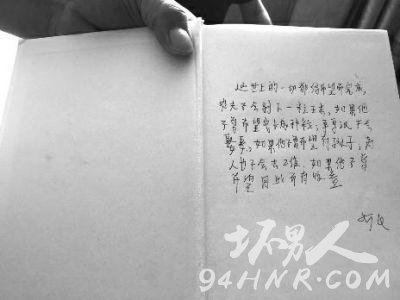 这世上的一切都借希望而完成,
农夫不会剥下一粒玉米,如果他
不曾希望它长成种粒;单身汉不会
娶妻,如果他不曾希望有孩子;商
人也不会去工作,如果他不曾
希望因此而有收益
坏男人
94HNR.COM